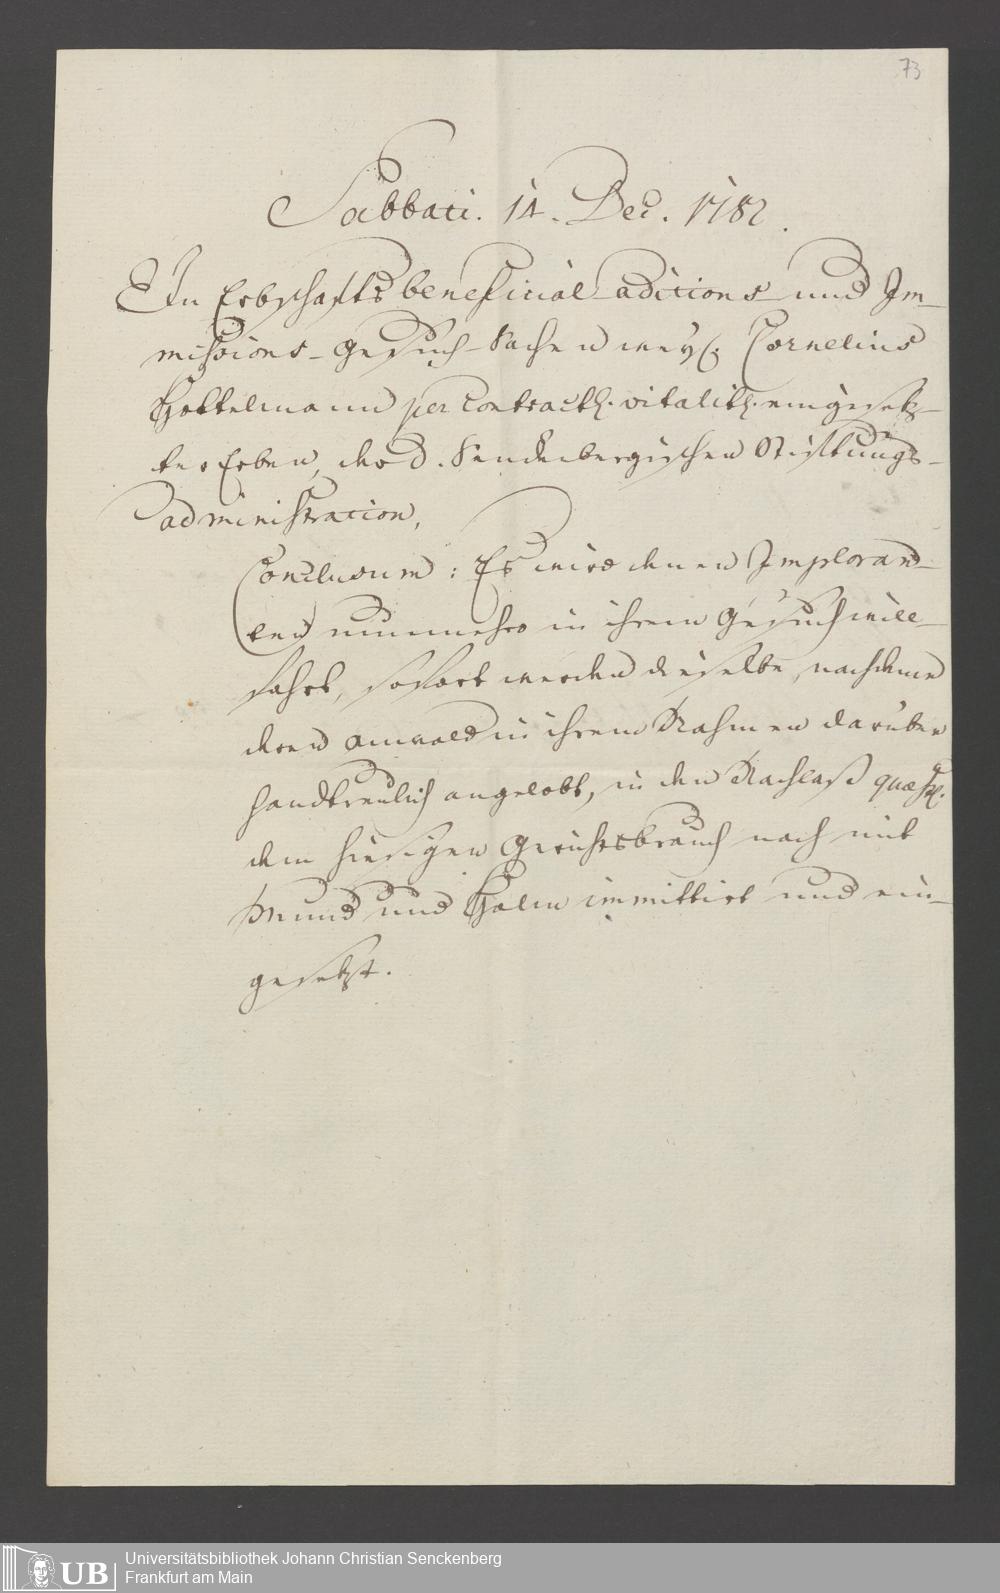 73
Sabbati. 14. Dec. 1782.
In Erbschafts beneficial aditions und Im-
missions-Gesuch-Sachen weyl. Cornelius
Hottelmann per Contract. vitalit. eingesetz-
ter Erben, der D. Senckenbergischen Stiftungs-
administration,
Conclusum: Es wird denen Imploran-
ten nunmehro in ihrem Gesuch will-
fahrt, sofort werden dieselbe, nachdeme
deren Anwald in ihrem Nahmen darüber
handtreulich angelobt, in den Nachlaß quaest.
dem hiesigen Gerichtsbrauch nach mit
Mund und Halm immittirt und ein-
gesetzt.
UB
Universitätsbibliothek Johann Christian Senckenberg
Frankfurt am Main